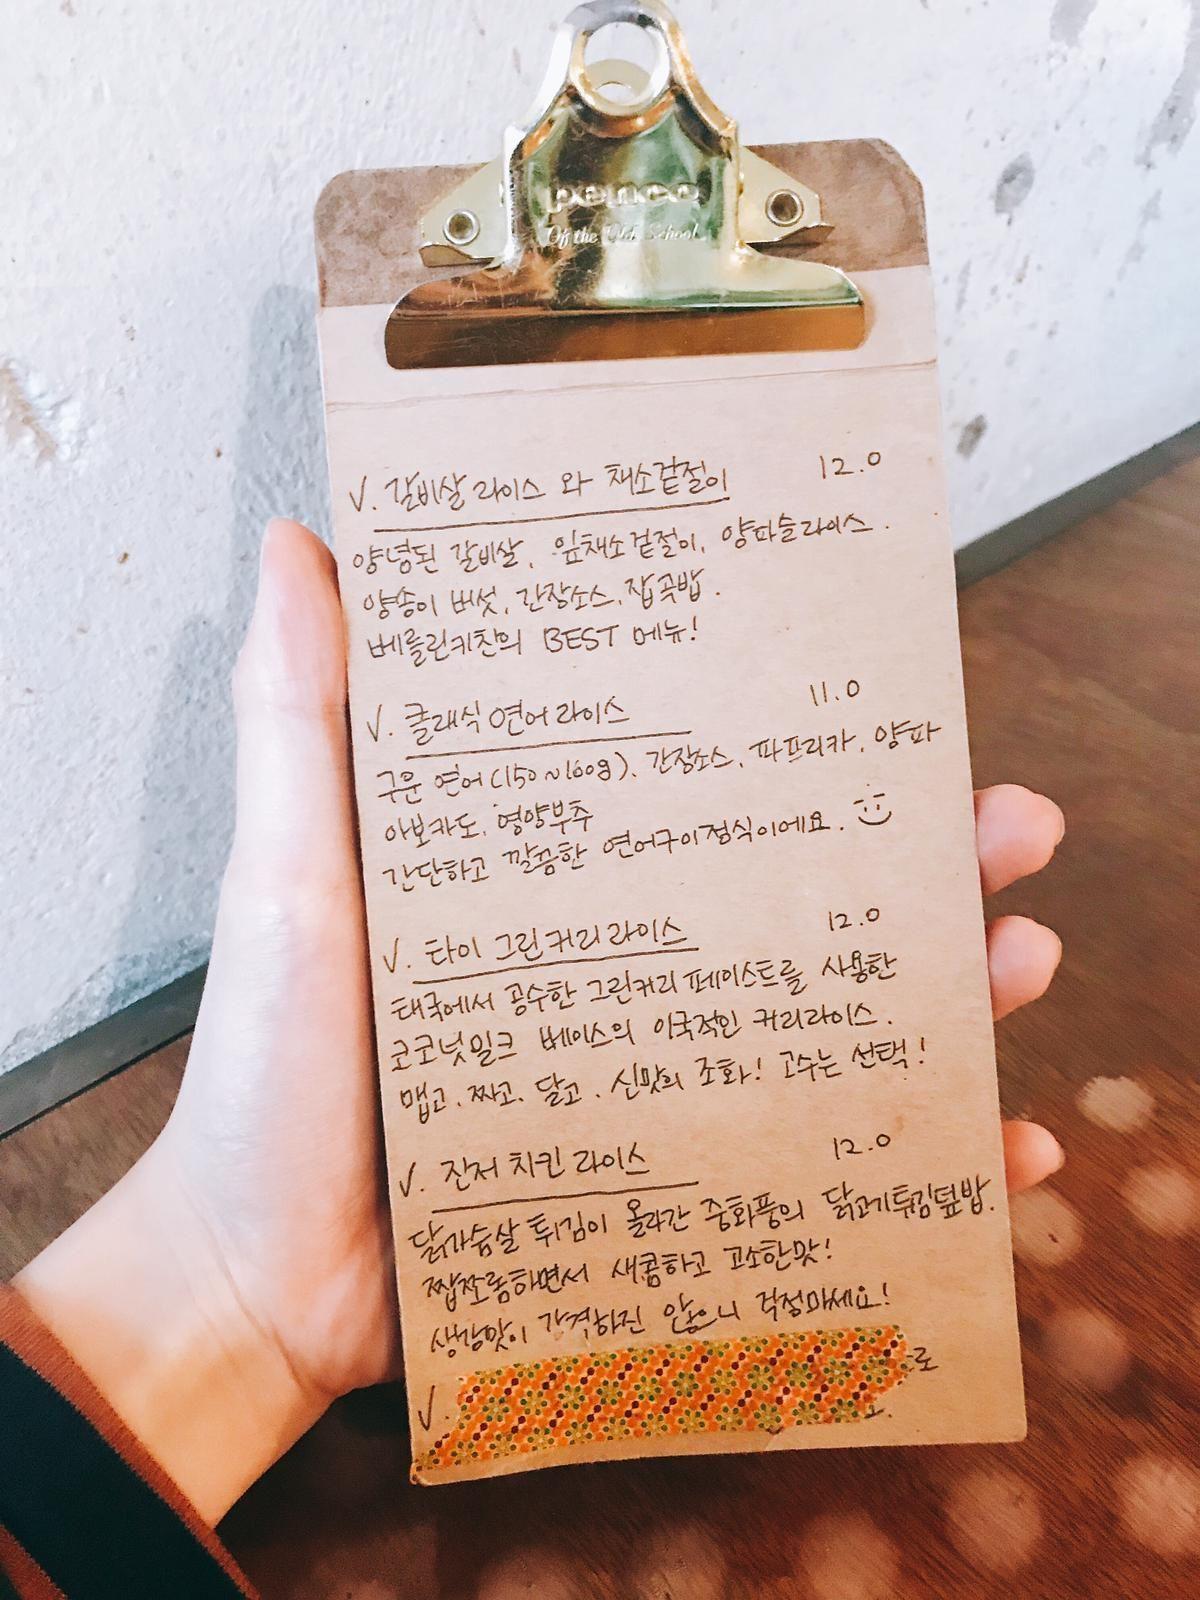 penco
Of the Old School
V. 갈비살 라이스 와 채소겉절이 12.0
양념된 갈비살, 잎채소겉절이, 양파슬라이스.
양송이 버섯, 간장소스, 잡곡밥.
베를린키친의 BEST 메뉴!
V. 클래식 연어 라이스 11.0
구운 연어(150~160g), 간장소스, 파프리카, 양파
아보카도, 영양부추
간단하고 깔끔한 연어구이정식이에요.
V. 타이 그린 커리 라이스 12.0
태국에서 공수한 그린커리 페이스트를 사용한
코코넛밀크 베이스의 이국적인 커리라이스.
맵고, 짜고, 달고, 신맛의 조화! 고수는 선택!
V. 진저 치킨 라이스 12.0
닭가슴살 튀김이 올라간 중화풍의 닭고기튀김덮밥.
짭쪼롬하면서 새콤하고 고소한맛!
생강맛이 강력하진 않으니 걱정마세요!
V. 로